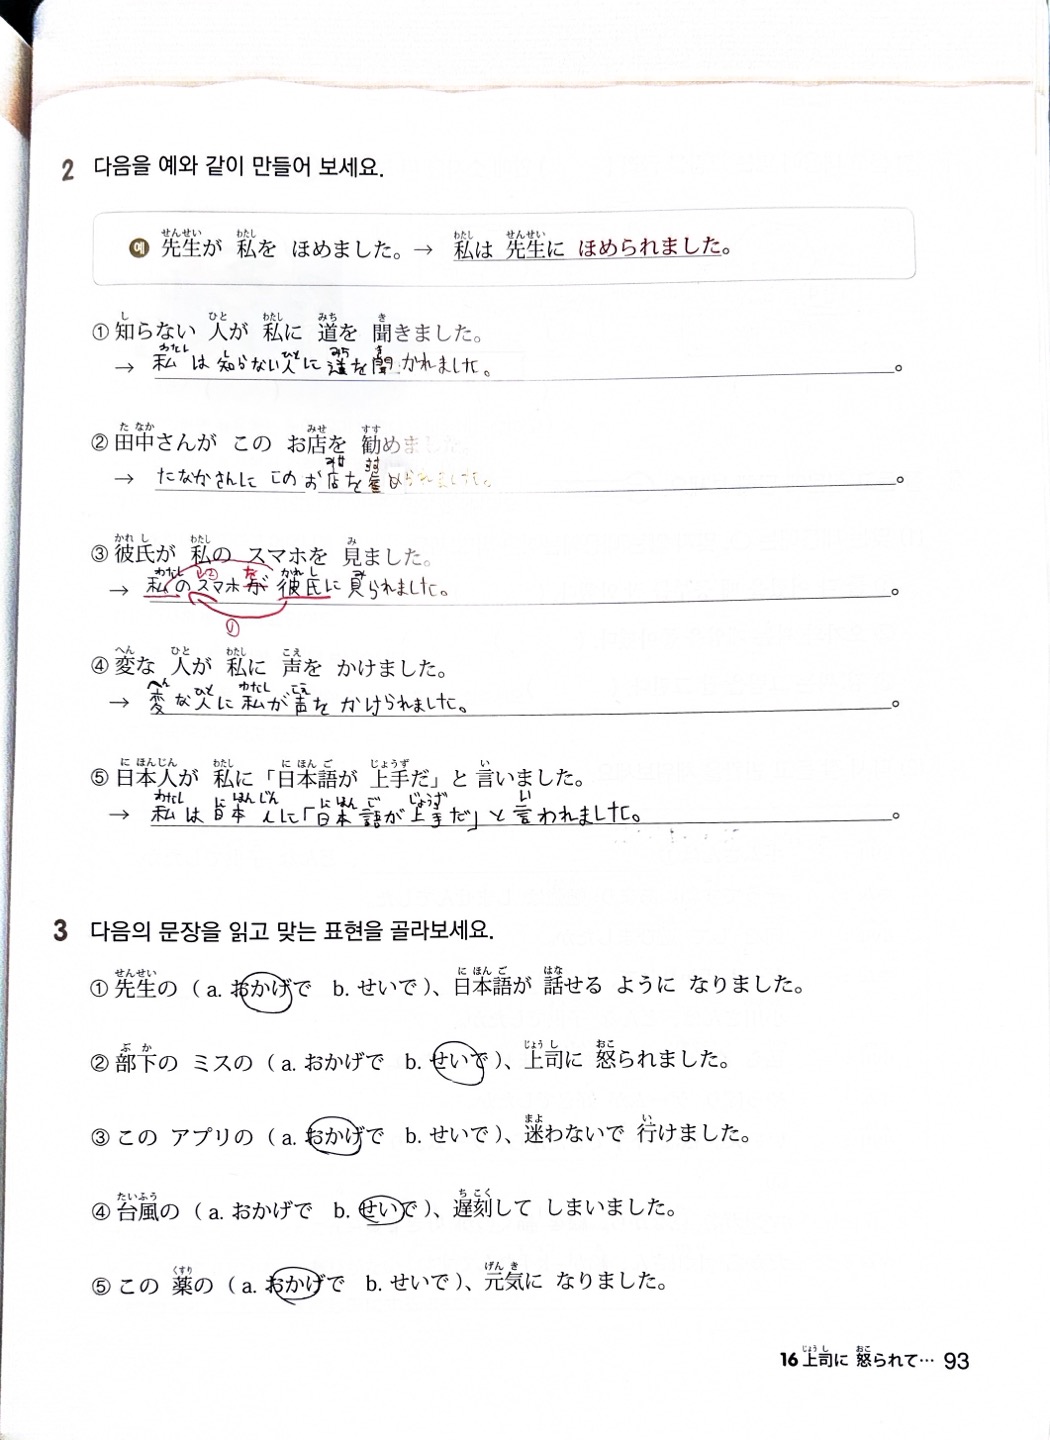 2 다음을 예와 같이 만들어 보세요.
예 先生が 私を ほめました。→ 私は 先生に ほめられました。
① 知らない 人が 私に 道を 聞きました。
→ 私は知らない人に道を聞かれました。
② 田中さんが この お店を 勧めま
→ たなかさんに このお店を められました。
③ 彼氏が 私の スマホを 見ました。
→ 私のスマホが彼氏に見られました。
①
④ 変な 人が 私に 声を かけました。
→ 変な人に私が声をかけられました。
⑤ 日本人が 私に「日本語が 上手だ」と 言いました。
→ 私は日本人に「日本語が上手だ」と言われました。
3 다음의 문장을 읽고 맞는 표현을 골라보세요.
① 先生の ( a. おかげで b. せいで )、日本語が 話せる ように なりました。
② 部下の ミスの ( a. おかげで b. せいで )、上司に 怒られました。
③ この アプリの ( a. おかげで b. せいで )、迷わないで 行けました。
④ 台風の ( a. おかげで b. せいで )、遅刻して しまいました。
⑤ この 薬の ( a. おかげで b. せいで )、元気に なりました。
16 上司に 怒られて… 93